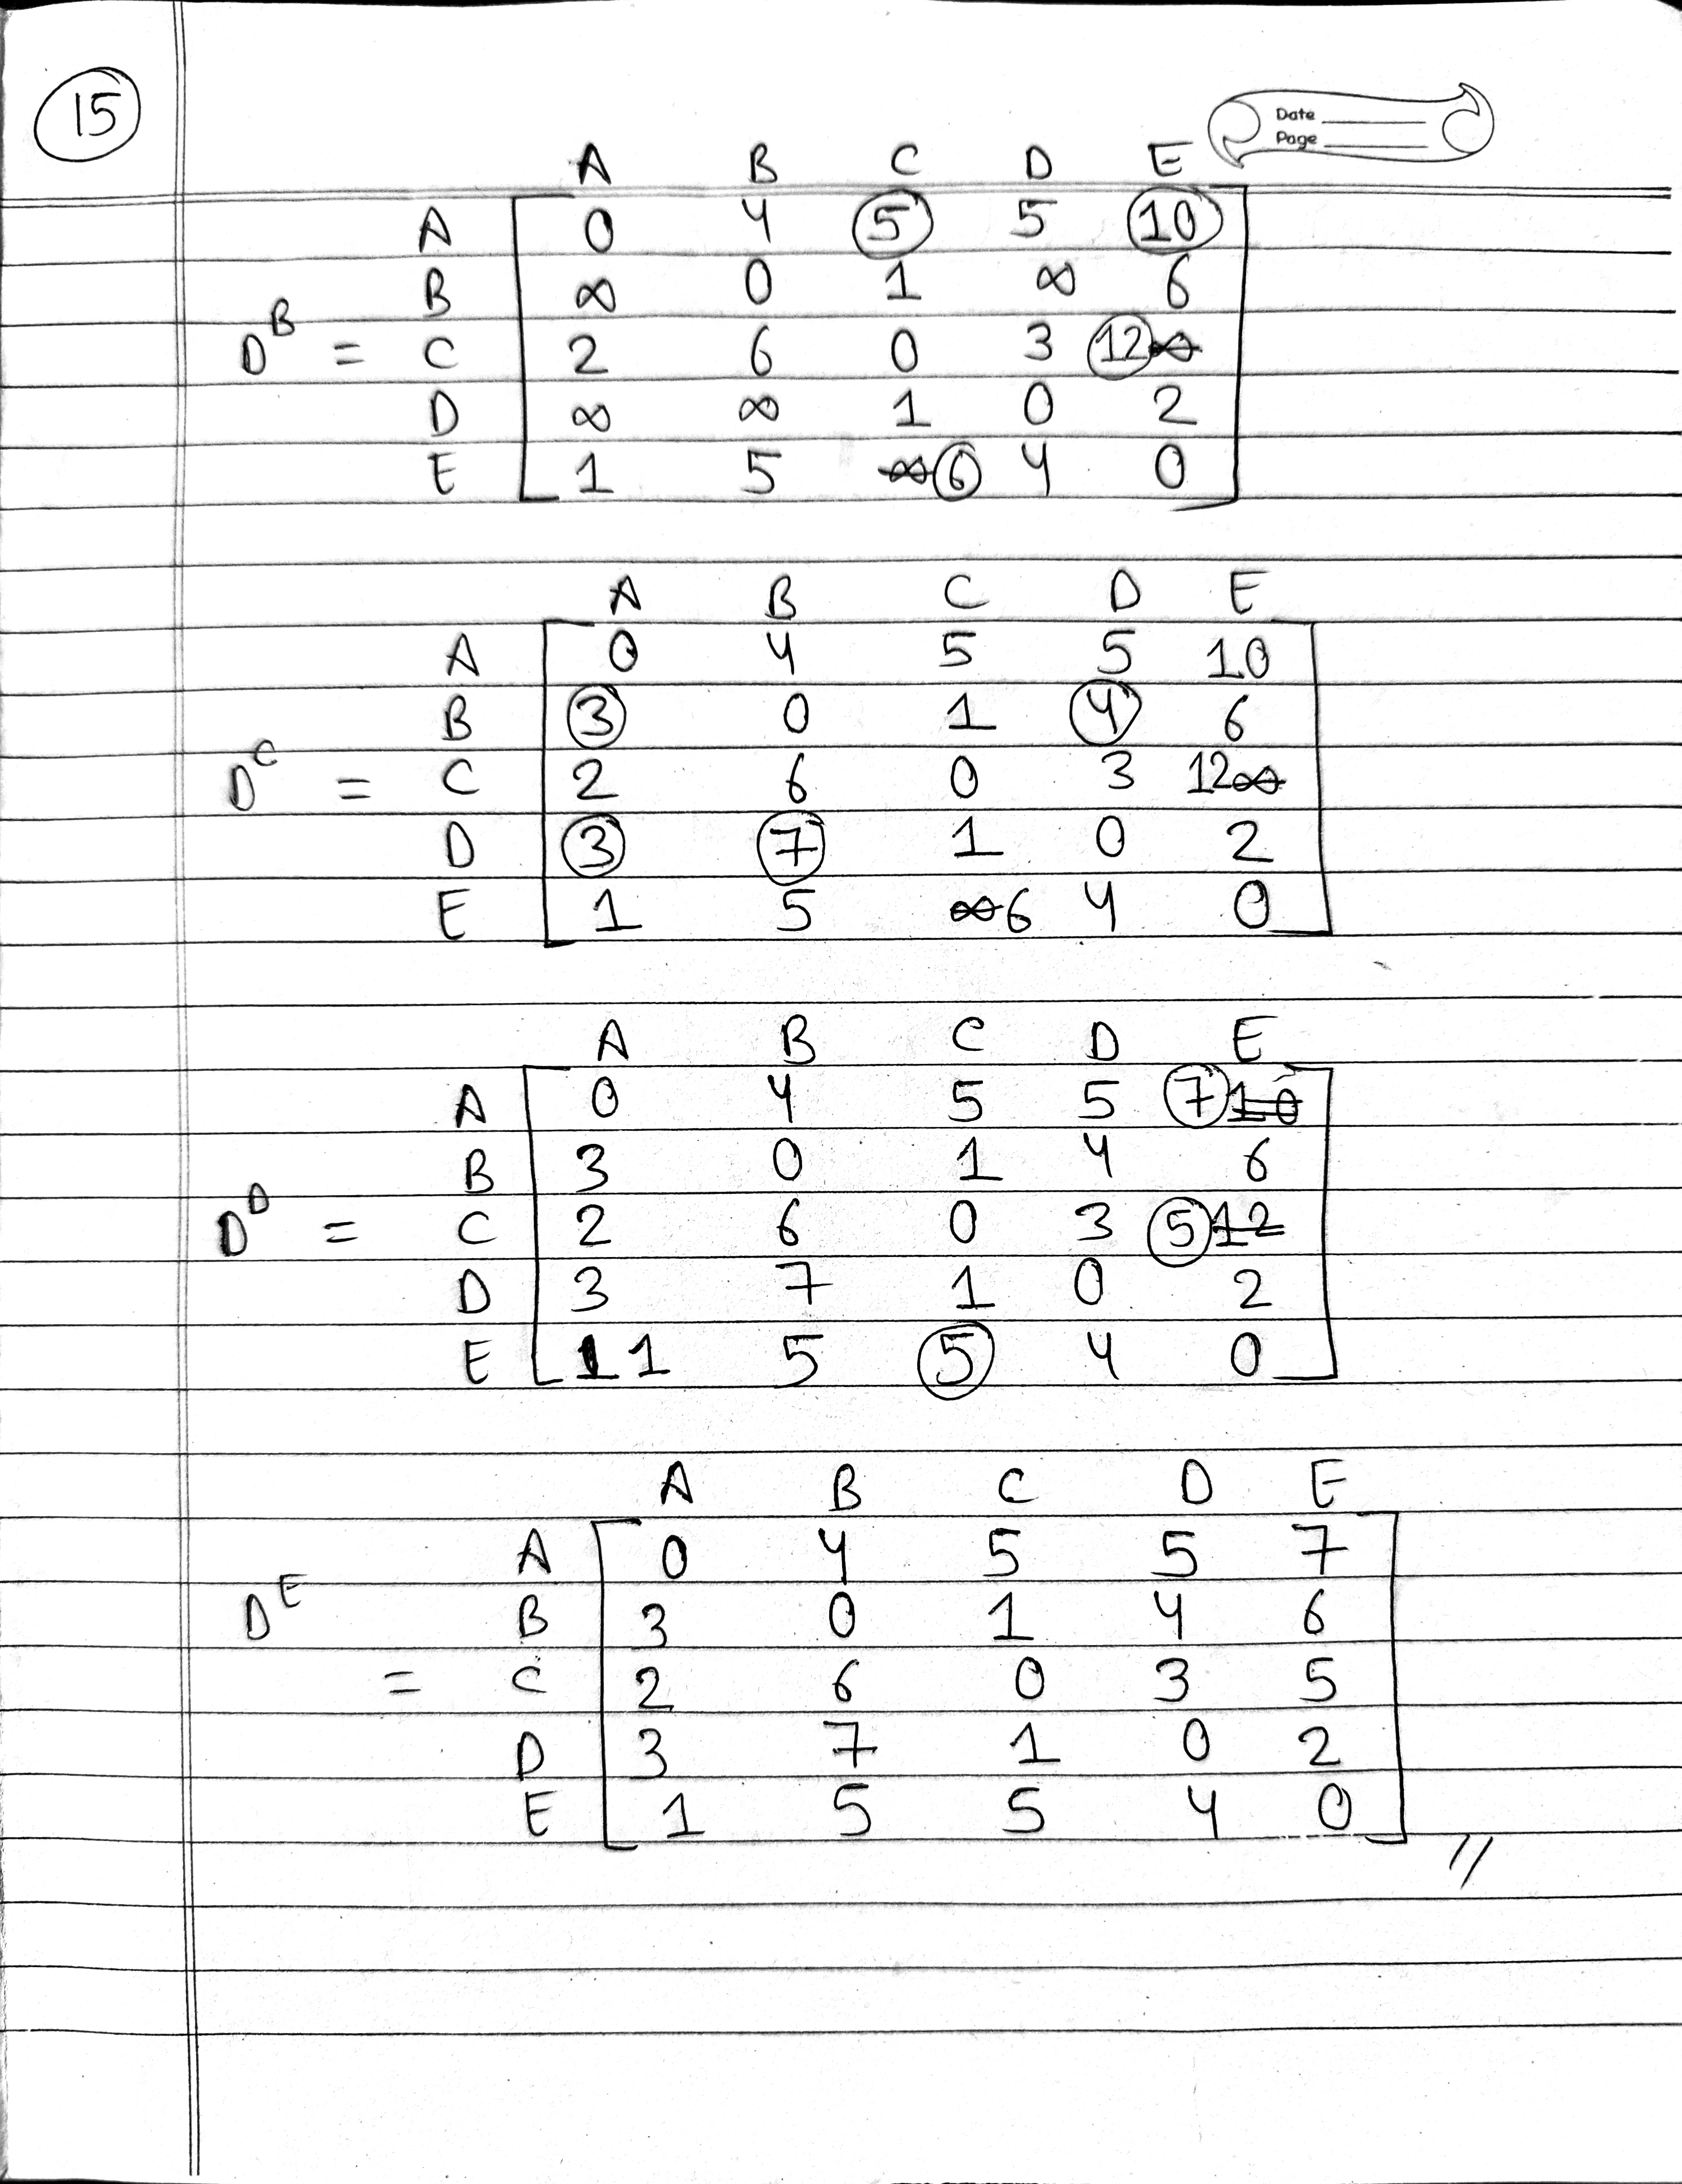 15
Date
Page
A B C D E
A 0 4 5 5 10
B ∞ 0 1 ∞ 6
D^B = C 2 6 0 3 12 ∞
D ∞ ∞ 1 0 2
E 1 5 ∞ 6 4 0
A B C D E
A 0 4 5 5 10
B 3 0 1 4 6
D^C = C 2 6 0 3 12 ∞
D 3 7 1 0 2
E 1 5 ∞ 6 4 0
A B C D E
A 0 4 5 5 7 10
B 3 0 1 4 6
D^D = C 2 6 0 3 5 12
D 3 7 1 0 2
E 1 1 5 5 4 0
A B C D E
A 0 4 5 5 7
D^E B 3 0 1 4 6
= C 2 6 0 3 5
D 3 7 1 0 2
E 1 5 5 4 0 //